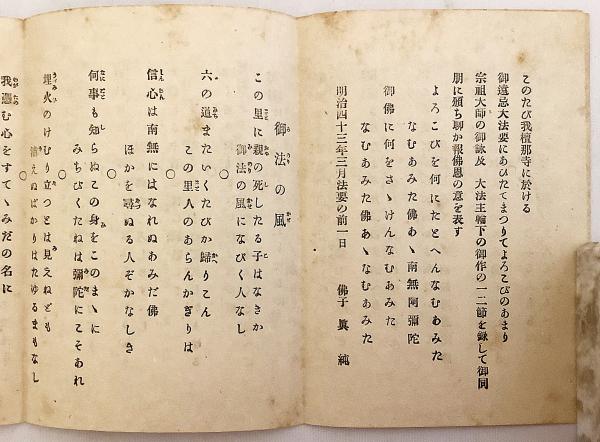 このたび我檀那寺に於ける
御遠忌大法要にあひたてまつりてよろこびのあまり
宗祖大師の御詠及　大法主猊下の御作の一二節を録して御同
朋に頒ち聊か報佛恩の意を表す
よろこびを何にたとへんなむあみた
なむあみた佛あゝ南無阿彌陀
御佛に何をさゝけんなむあみた
なむあみた佛あゝなむあみた
明治四十三年三月法要の前一日　佛子　眞　純
御法の風
この里に親の死したる子はなきか
御法の風になびく人なし
○
六の道またいくたびか歸りこん
この里人のあらんかぎりは
○
信心は南無にはなれぬあみだ佛
ほかを尋ぬる人ぞかなしき
○
何事も知らぬこの身をこのまゝに
みちびくたねは彌陀にこそあれ
○
埋火のけむり立つとは見えねども
消えぬばかりはたゆるまもなし
○
我憑む心をすてゝみだの名に